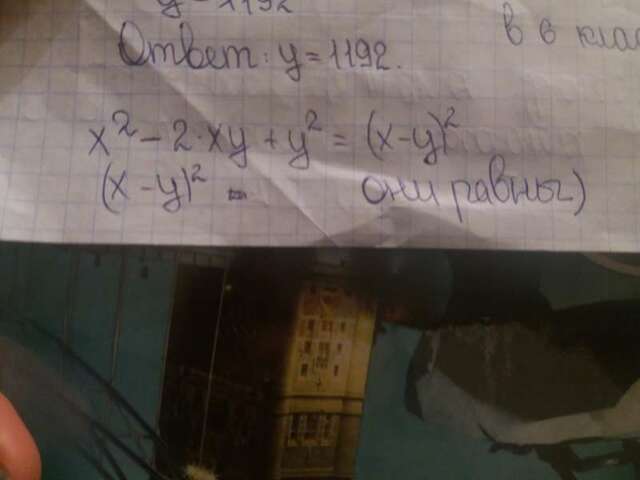 y = 1192
Ответ: y = 1192.
в 6 клас
x² - 2·xy + y² = (x-y)²
(x - y)² - они равны)